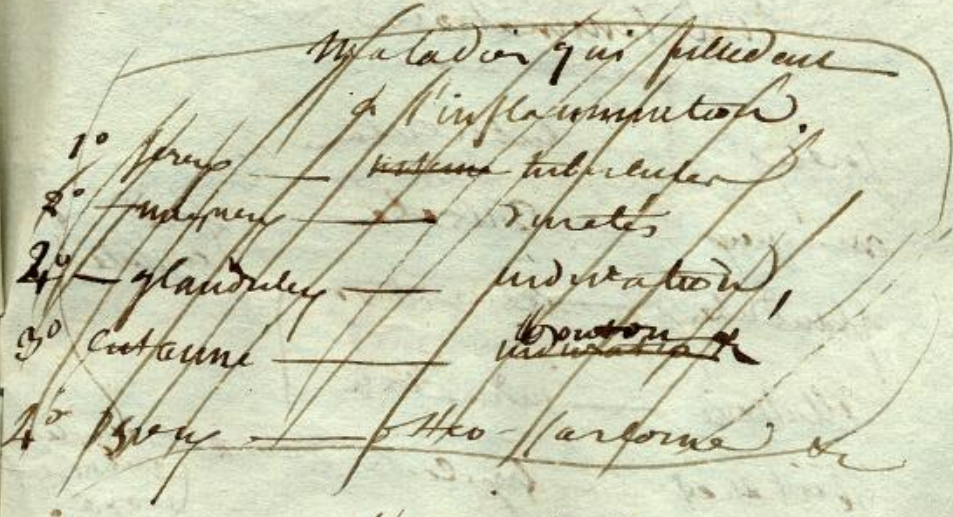 Maladies qui succedent
à l'inflammation.
1° sereux — tubercules
2° — muqueux — duretés
2° 4° — glanduleux — induration,
3° cuttanné — bouton &
4° osseux — osteo-sarcome &c